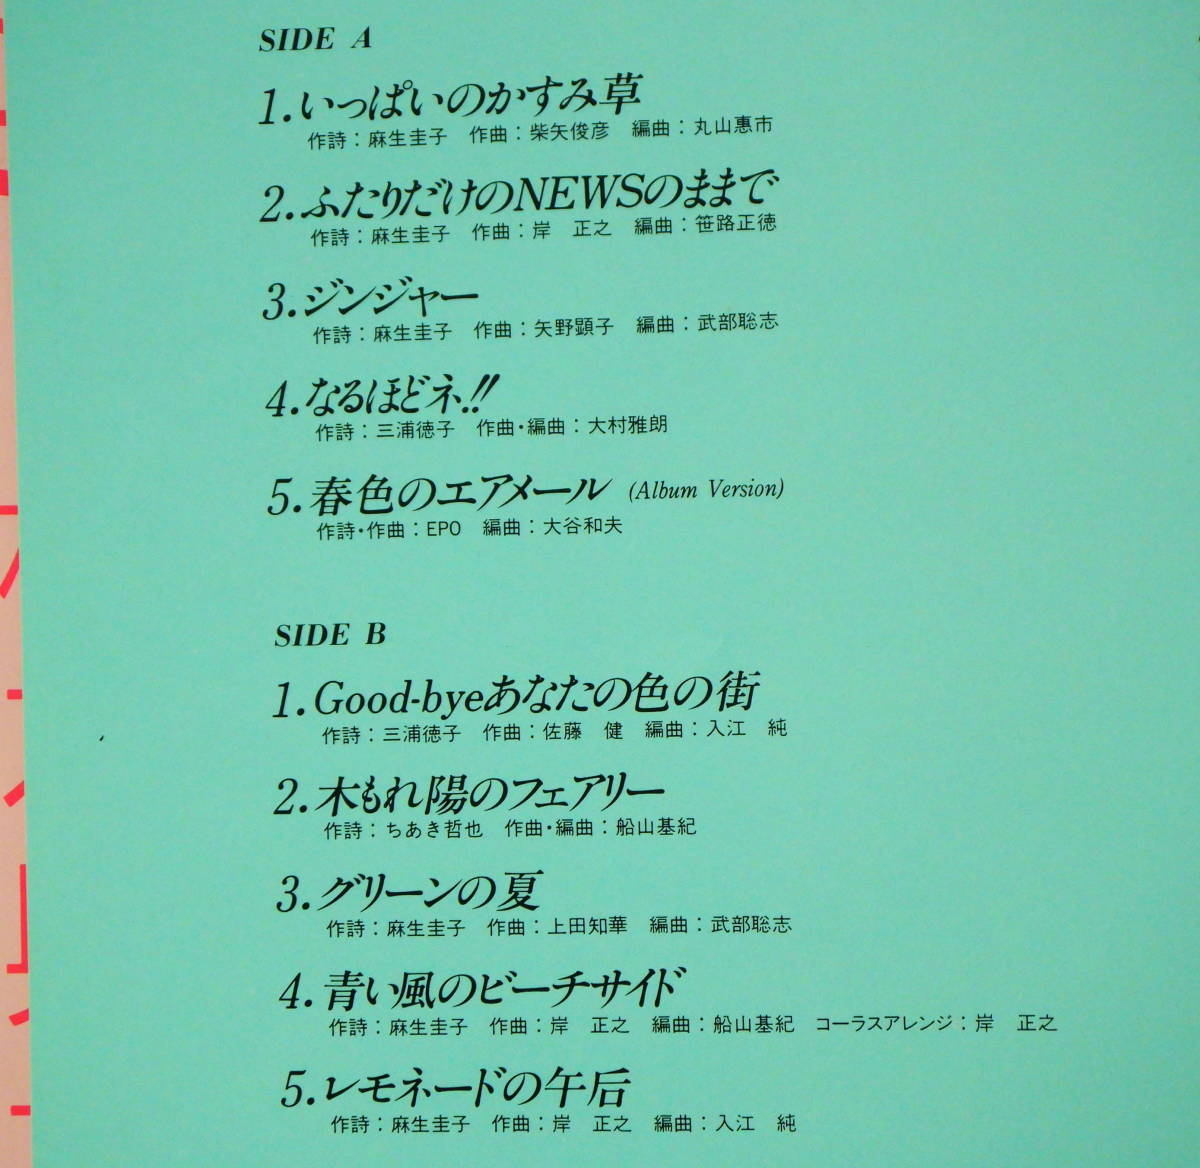 SIDE A
1.いっぱいのかすみ草
作詩：麻生圭子　作曲：柴矢俊彦　編曲：丸山惠市
2.ふたりだけのNEWSのままで
作詩：麻生圭子　作曲：岸　正之　編曲：笹路正徳
3.ジンジャー
作詩：麻生圭子　作曲：矢野顕子　編曲：武部聡志
4.なるほどネ!!
作詩：三浦徳子　作曲・編曲：大村雅朗
5.春色のエアメール (Album Version)
作詩・作曲：EPO　編曲：大谷和夫
SIDE B
1.Good-byeあなたの色の街
作詩：三浦徳子　作曲：佐藤　健　編曲：入江　純
2.木もれ陽のフェアリー
作詩：ちあき哲也　作曲・編曲：船山基紀
3.グリーンの夏
作詩：麻生圭子　作曲：上田知華　編曲：武部聡志
4.青い風のビーチサイド
作詩：麻生圭子　作曲：岸　正之　編曲：船山基紀　コーラスアレンジ：岸　正之
5.レモネードの午后
作詩：麻生圭子　作曲：岸　正之　編曲：入江　純